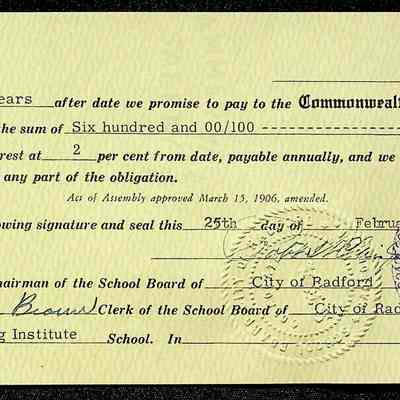 ears after date we promise to pay to the Commonwealt
the sum of Six hundred and 00/100 --------------------
rest at 2 per cent from date, payable annually, and we
any part of the obligation.
Act of Assembly approved March 15, 1906, amended.
owing signature and seal this 25th day of - Februa
hairman of the School Board of City of Radford
Brown Clerk of the School Board of City of Rad
g Institute School. In